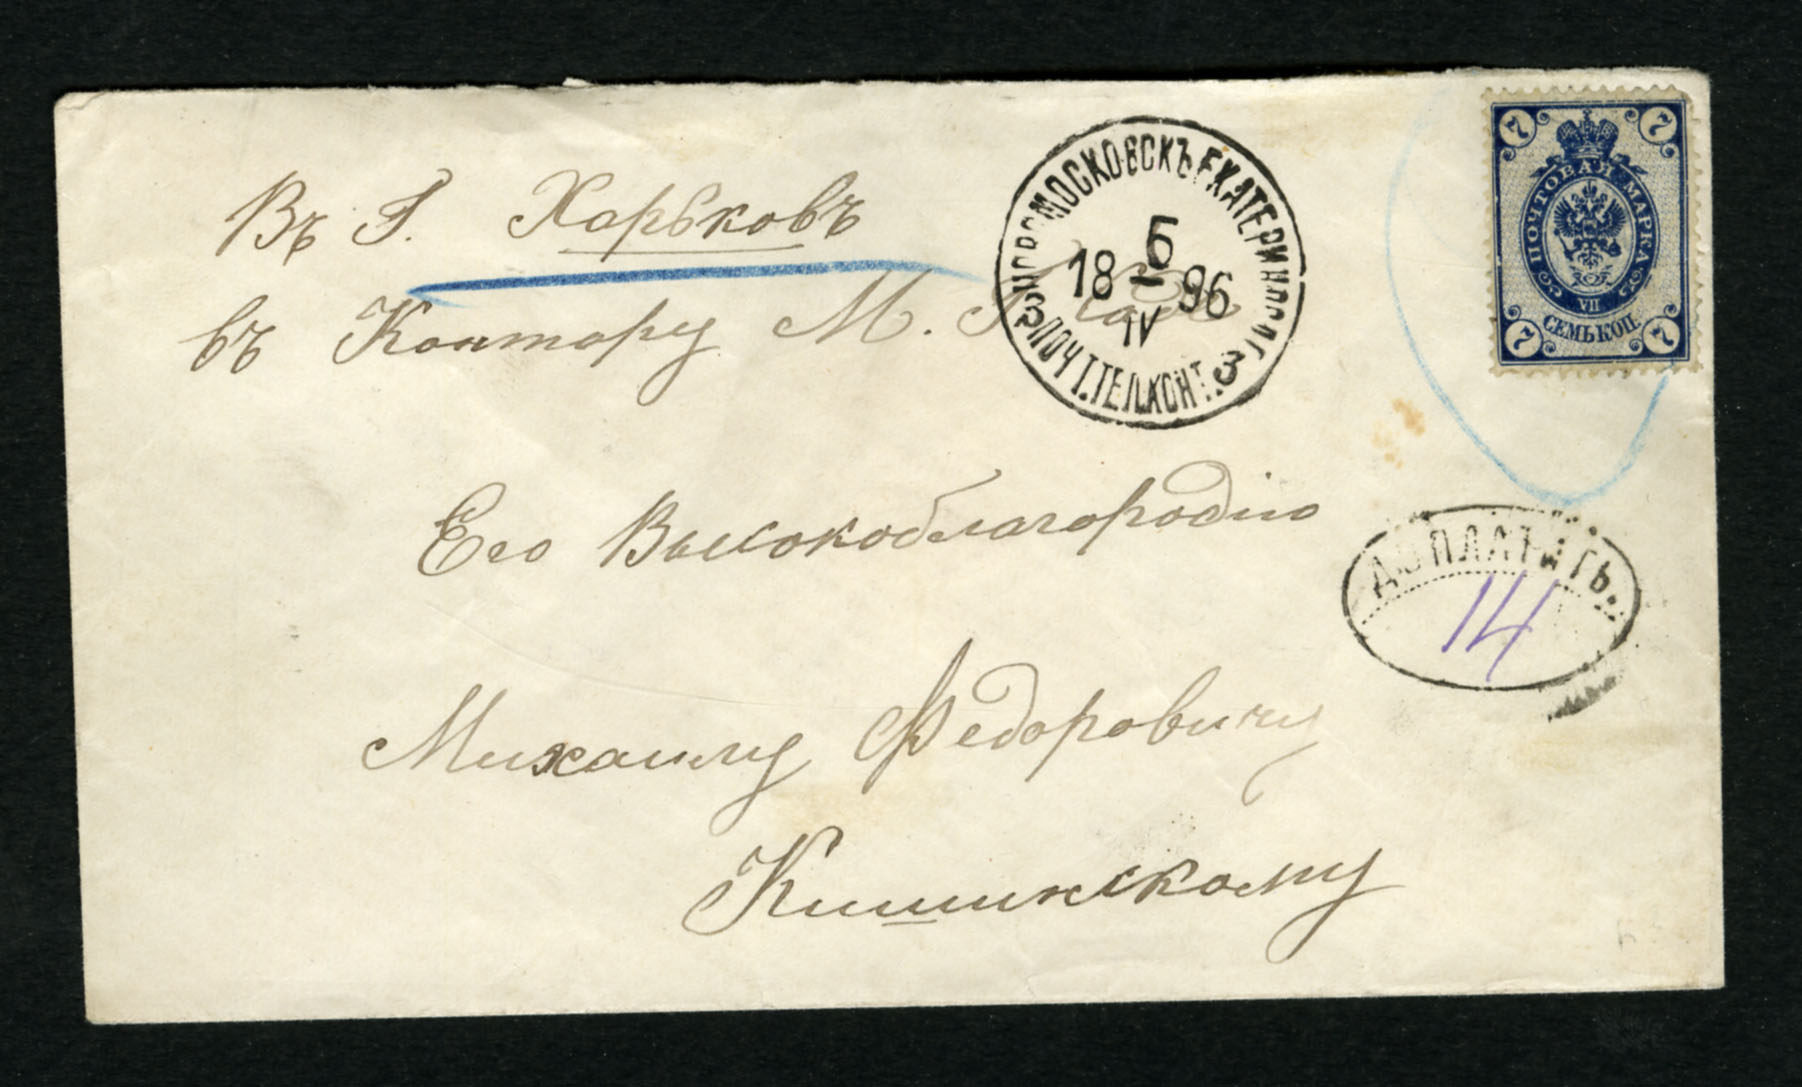 Въ Г. Харьковъ
въ Контору М.
Его Высокоблагородію
Михаилу Федоровичу
Кишинскому
НОВОМОСКОВСКЪ ЕКАТЕРИНОСЛ. Г.
5
18 – 96
IV
3 ПОЧТ. ТЕЛ. КОНТ. 3
7 7
ПОЧТОВАЯ МАРКА
VII
СЕМЬ КОП.
7 7
ДОПЛАТИТЬ.
14